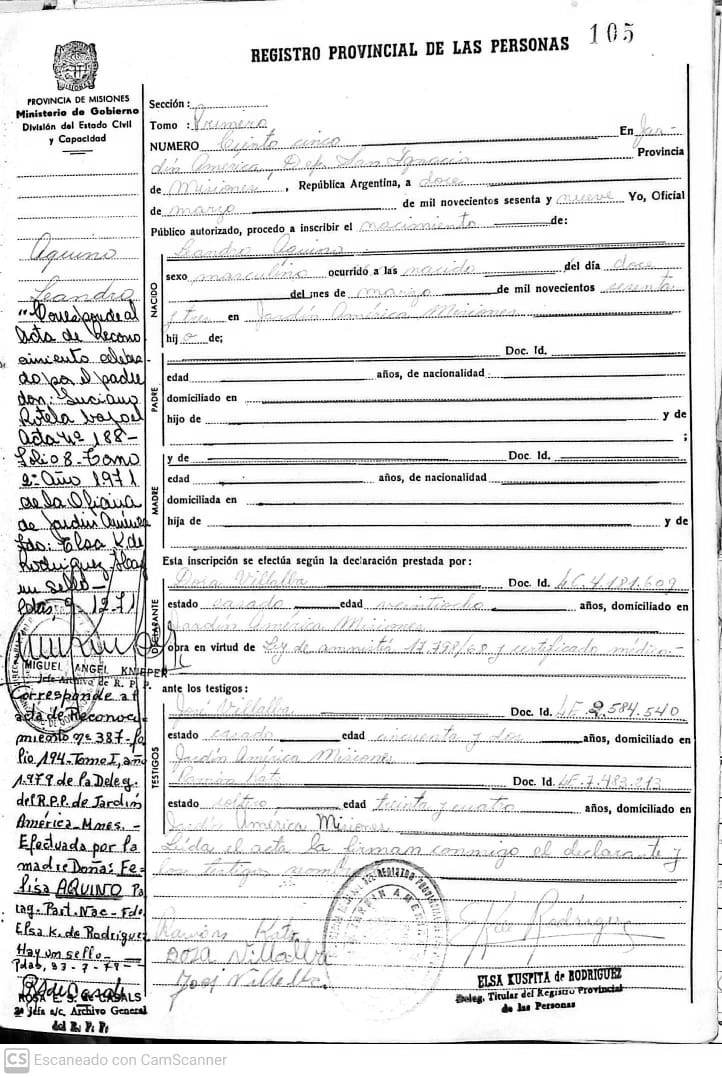 105
REGISTRO PROVINCIAL DE LAS PERSONAS
PROVINCIA DE MISIONES
Ministerio de Gobierno
División del Estado Civil
y Capacidad
Aquino
Leandro
"Corresponde al
Acta de Recono
cimiento celebra-
do por el padre
don: Luciano
Rotela bajo el
Acta nº 188-
Folio 8- Tomo
2º Año 1971
de la Oficina
de Jardín América
fdo: Elsa K de
Rodríguez Hay
un sello-
Pdas 1271
MIGUEL ANGEL KNIEPER
Jefe Archivo de R. P. P.
Corresponde al
acta de Reconoci-
miento nº 387-fo
lio 194-Tomo I, año
1.979 de la Deleg.
del R.P.P. de Jardín
América-Mnes.-
Efectuada por la
madre Doña: Fe-
lisa AQUINO Pa
rag. Part. Nac- Fdo.
Elsa K. de Rodriguez
Hay un sello-
ROSA E. S. de CASALS
2º Jefa a/c. Archivo General
del R. P. P.
Sección:
Tomo : Primero
NUMERO Ciento cinco En Jar-
dín América, Dep. San Ignacio Provincia
de Misiones, República Argentina, a doce
de marzo de mil novecientos sesenta y nueve Yo, Oficial
Público autorizado, procedo a inscribir el nacimiento de:
NACIDO
Leandro Aquino
sexo masculino ocurrido a las nacido del día doce
del mes de marzo de mil novecientos sesenta
y tres en Jardín América Misiones
hijo de;
PADRE
Doc. Id.
edad años, de nacionalidad
domiciliado en
hijo de y de
;
MADRE
y de Doc. Id.
edad años, de nacionalidad
domiciliada en
hija de y de
Esta inscripción se efectúa según la declaración prestada por :
DECLARANTE
Dosa Villalba Doc. Id. LC.4.181.609
estado casado edad veintiocho años, domiciliado en
Jardín América Misiones
obra en virtud de Ley de amnistía 17.798/68 y certificado médico
ante los testigos:
TESTIGOS
José Villalba Doc. Id. LE 2.584.540
estado casado edad cincuenta y dos años, domiciliado en
Jardín América Misiones
Ramón Kato Doc. Id. LE.7.483.213
estado soltero edad treinta y cuatro años, domiciliado en
Jardín América Misiones
Leída el acta la firman conmigo el declarante y
los testigos
Ramón Kato
DOSA Villalba
José Villalba
E K de Rodríguez
ELSA KUSPITA de RODRIGUEZ
Deleg. Titular del Registro Provincial
de las Personas
CS Escaneado con CamScanner